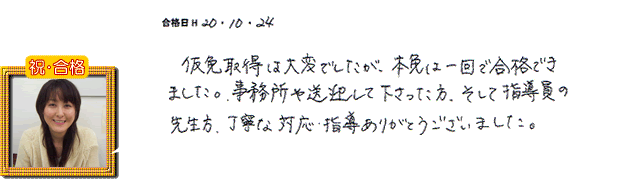 合格日 H 20・10・24
祝・合格
仮免取得は大変でしたが、本免は一回で合格でき
ました。事務所や送迎して下さった方、そして指導員の
先生方、丁寧な対応・指導ありがとうございました。